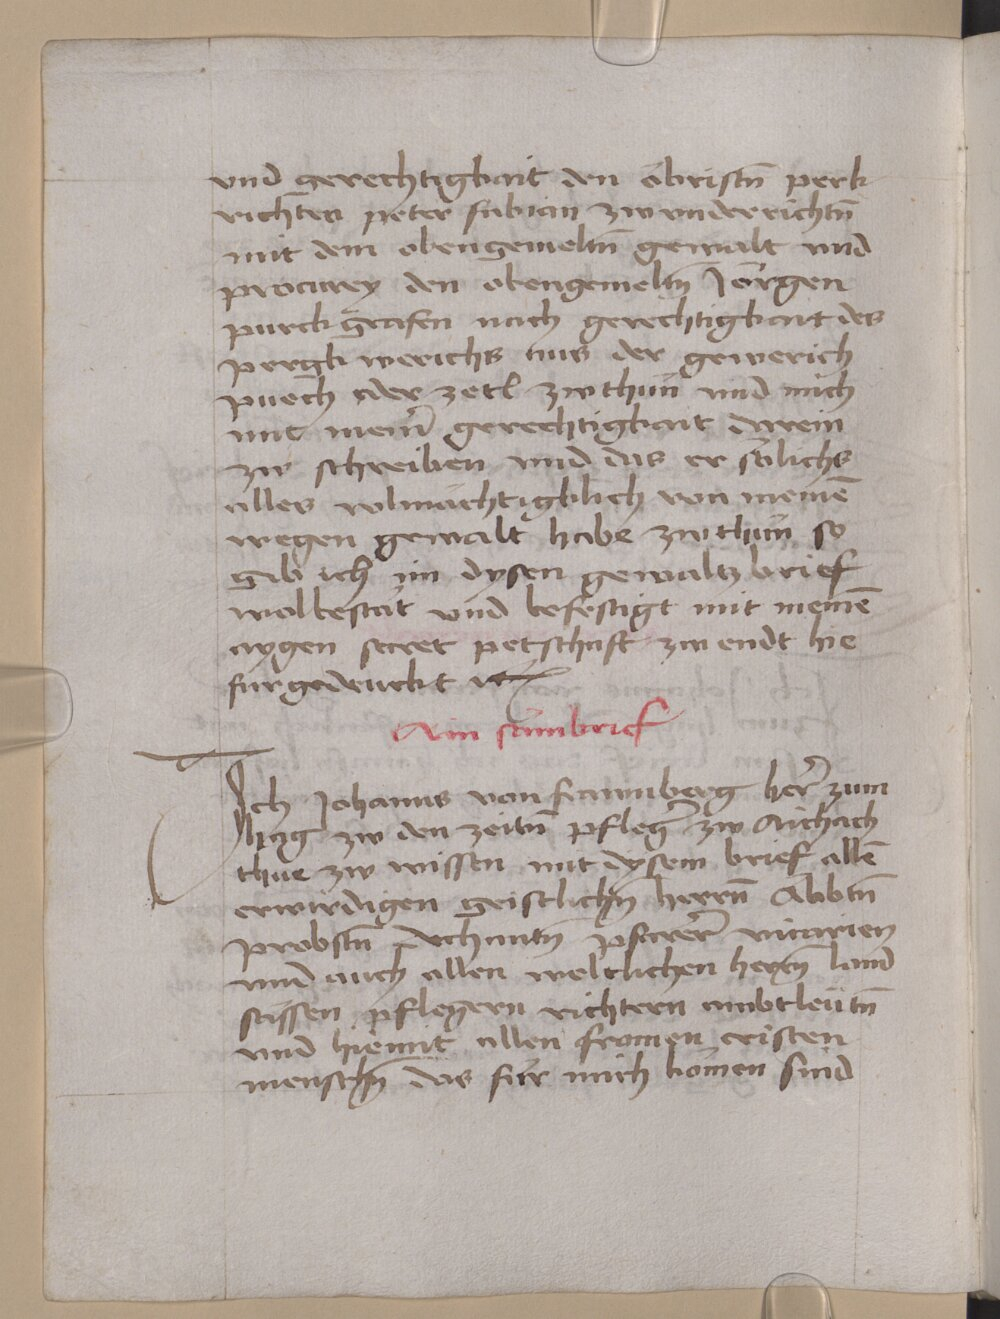 vnd gerechtigkait den öbristn̄ perk
richten peter fabian zw vnderrichtn̄
mit dem obengemeltn̄ gewalt vnd
procurey den obengemeltn̄ Jörgen
purckgrafen nach gerechtigkait des
pergk werichs aus der gewerich
puech oder zetl zw thun vnd mich
mit meinr̄ gerechtigkait darein
zw schreiben vnd das er sölichs
alles volmächtigklich von meinē
wegen gewalt habe zw thun so
gib ich im dysen gewaltz brief
wolbestät vnd befestigt mit meinē
aygen secret petschaft zw endt hie
fürgedruckt
Ain brief
Ich Johanns von fraunberg her̄ zum
hag zw den zeitn̄ pfleger̄ zw Aichach
thue zw wissen mit dysem brief allē
erwirdigen geistlichn̄ herrn̄ Abbtn̄
probstn̄ dechantn̄ pfarer̄ vicarien
vnd auch allen weltlichen herrn̄ land
sässen pflegern richtern ambtleütn̄
vnd hiemit allen fromen cristen
menschn̄ das für mich komen sind